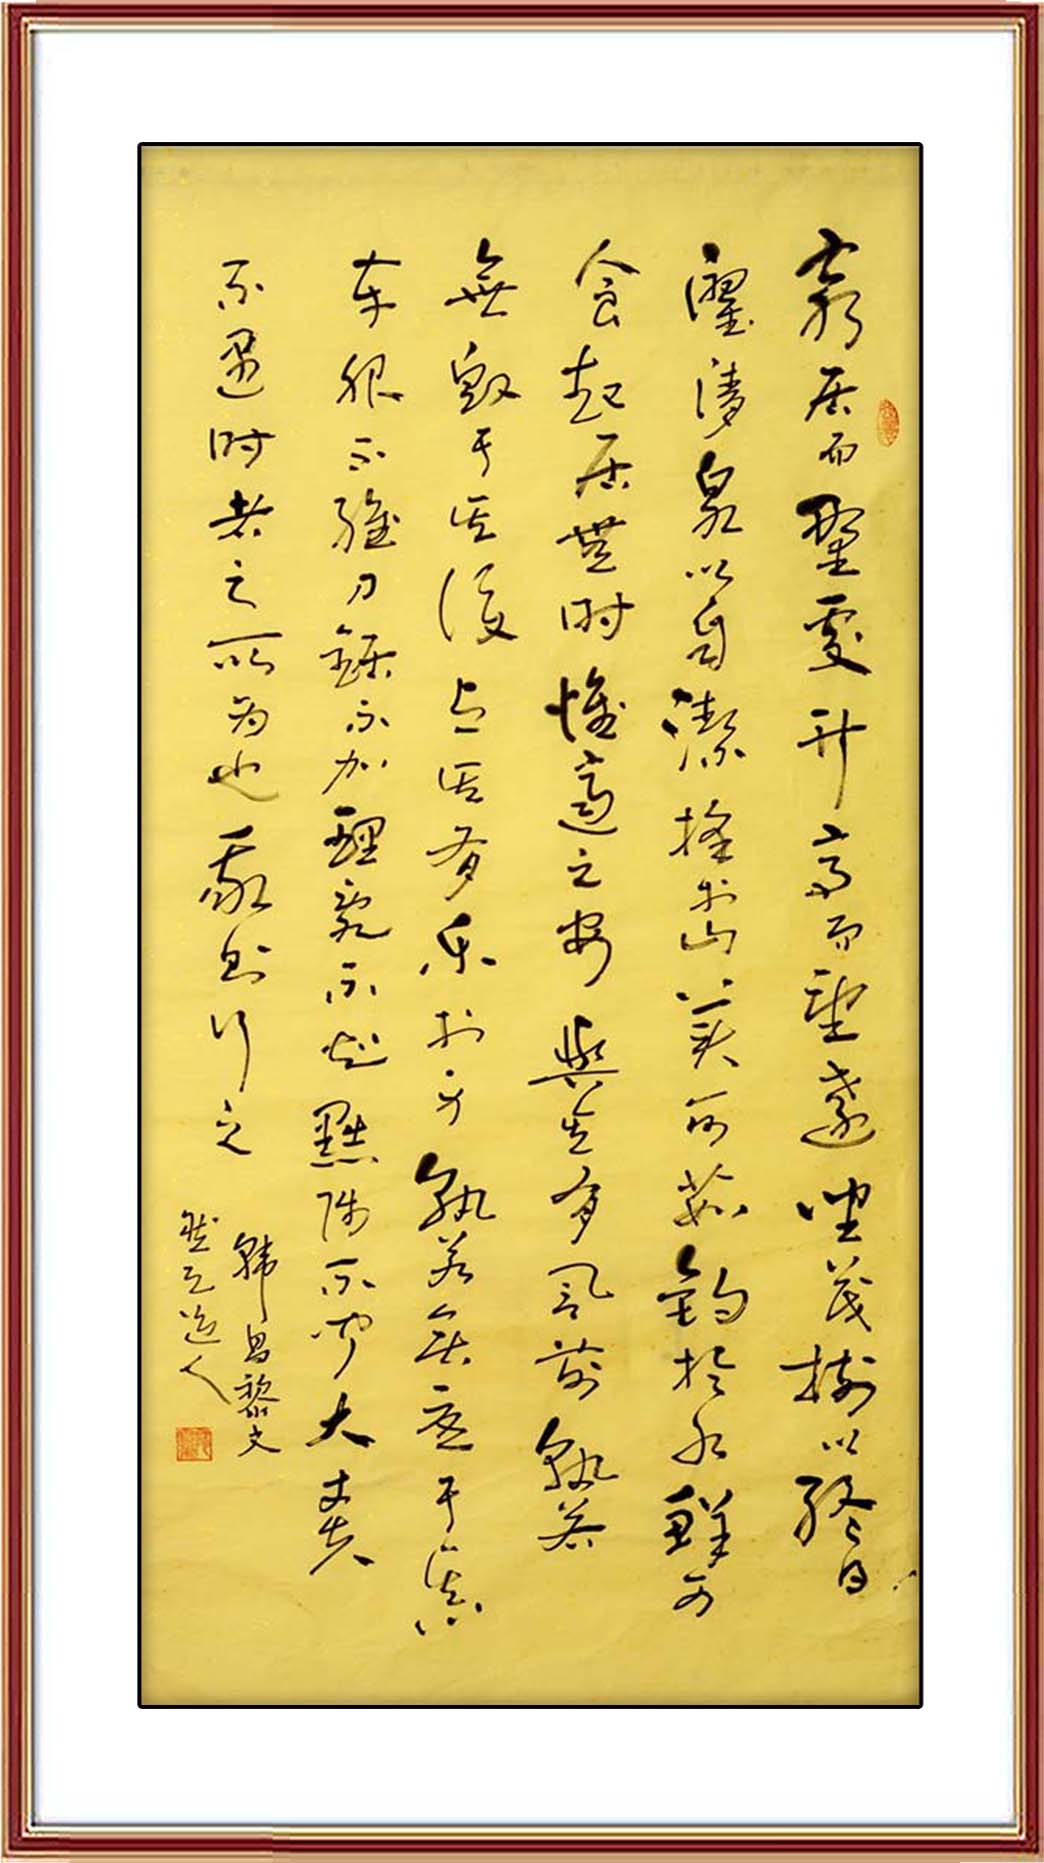 窮居而野處升高而望遠坐茂樹以終日
濯清泉以自潔採於山美可茹釣於水鮮可
食起居無時惟適之安與其有譽前孰若
無毀于其後与其有樂於身孰若無憂于其心
車服不維刀鋸不加理亂不知黜陟不聞大丈夫
不遇時者之所為也我則行之
韓昌黎文
道人